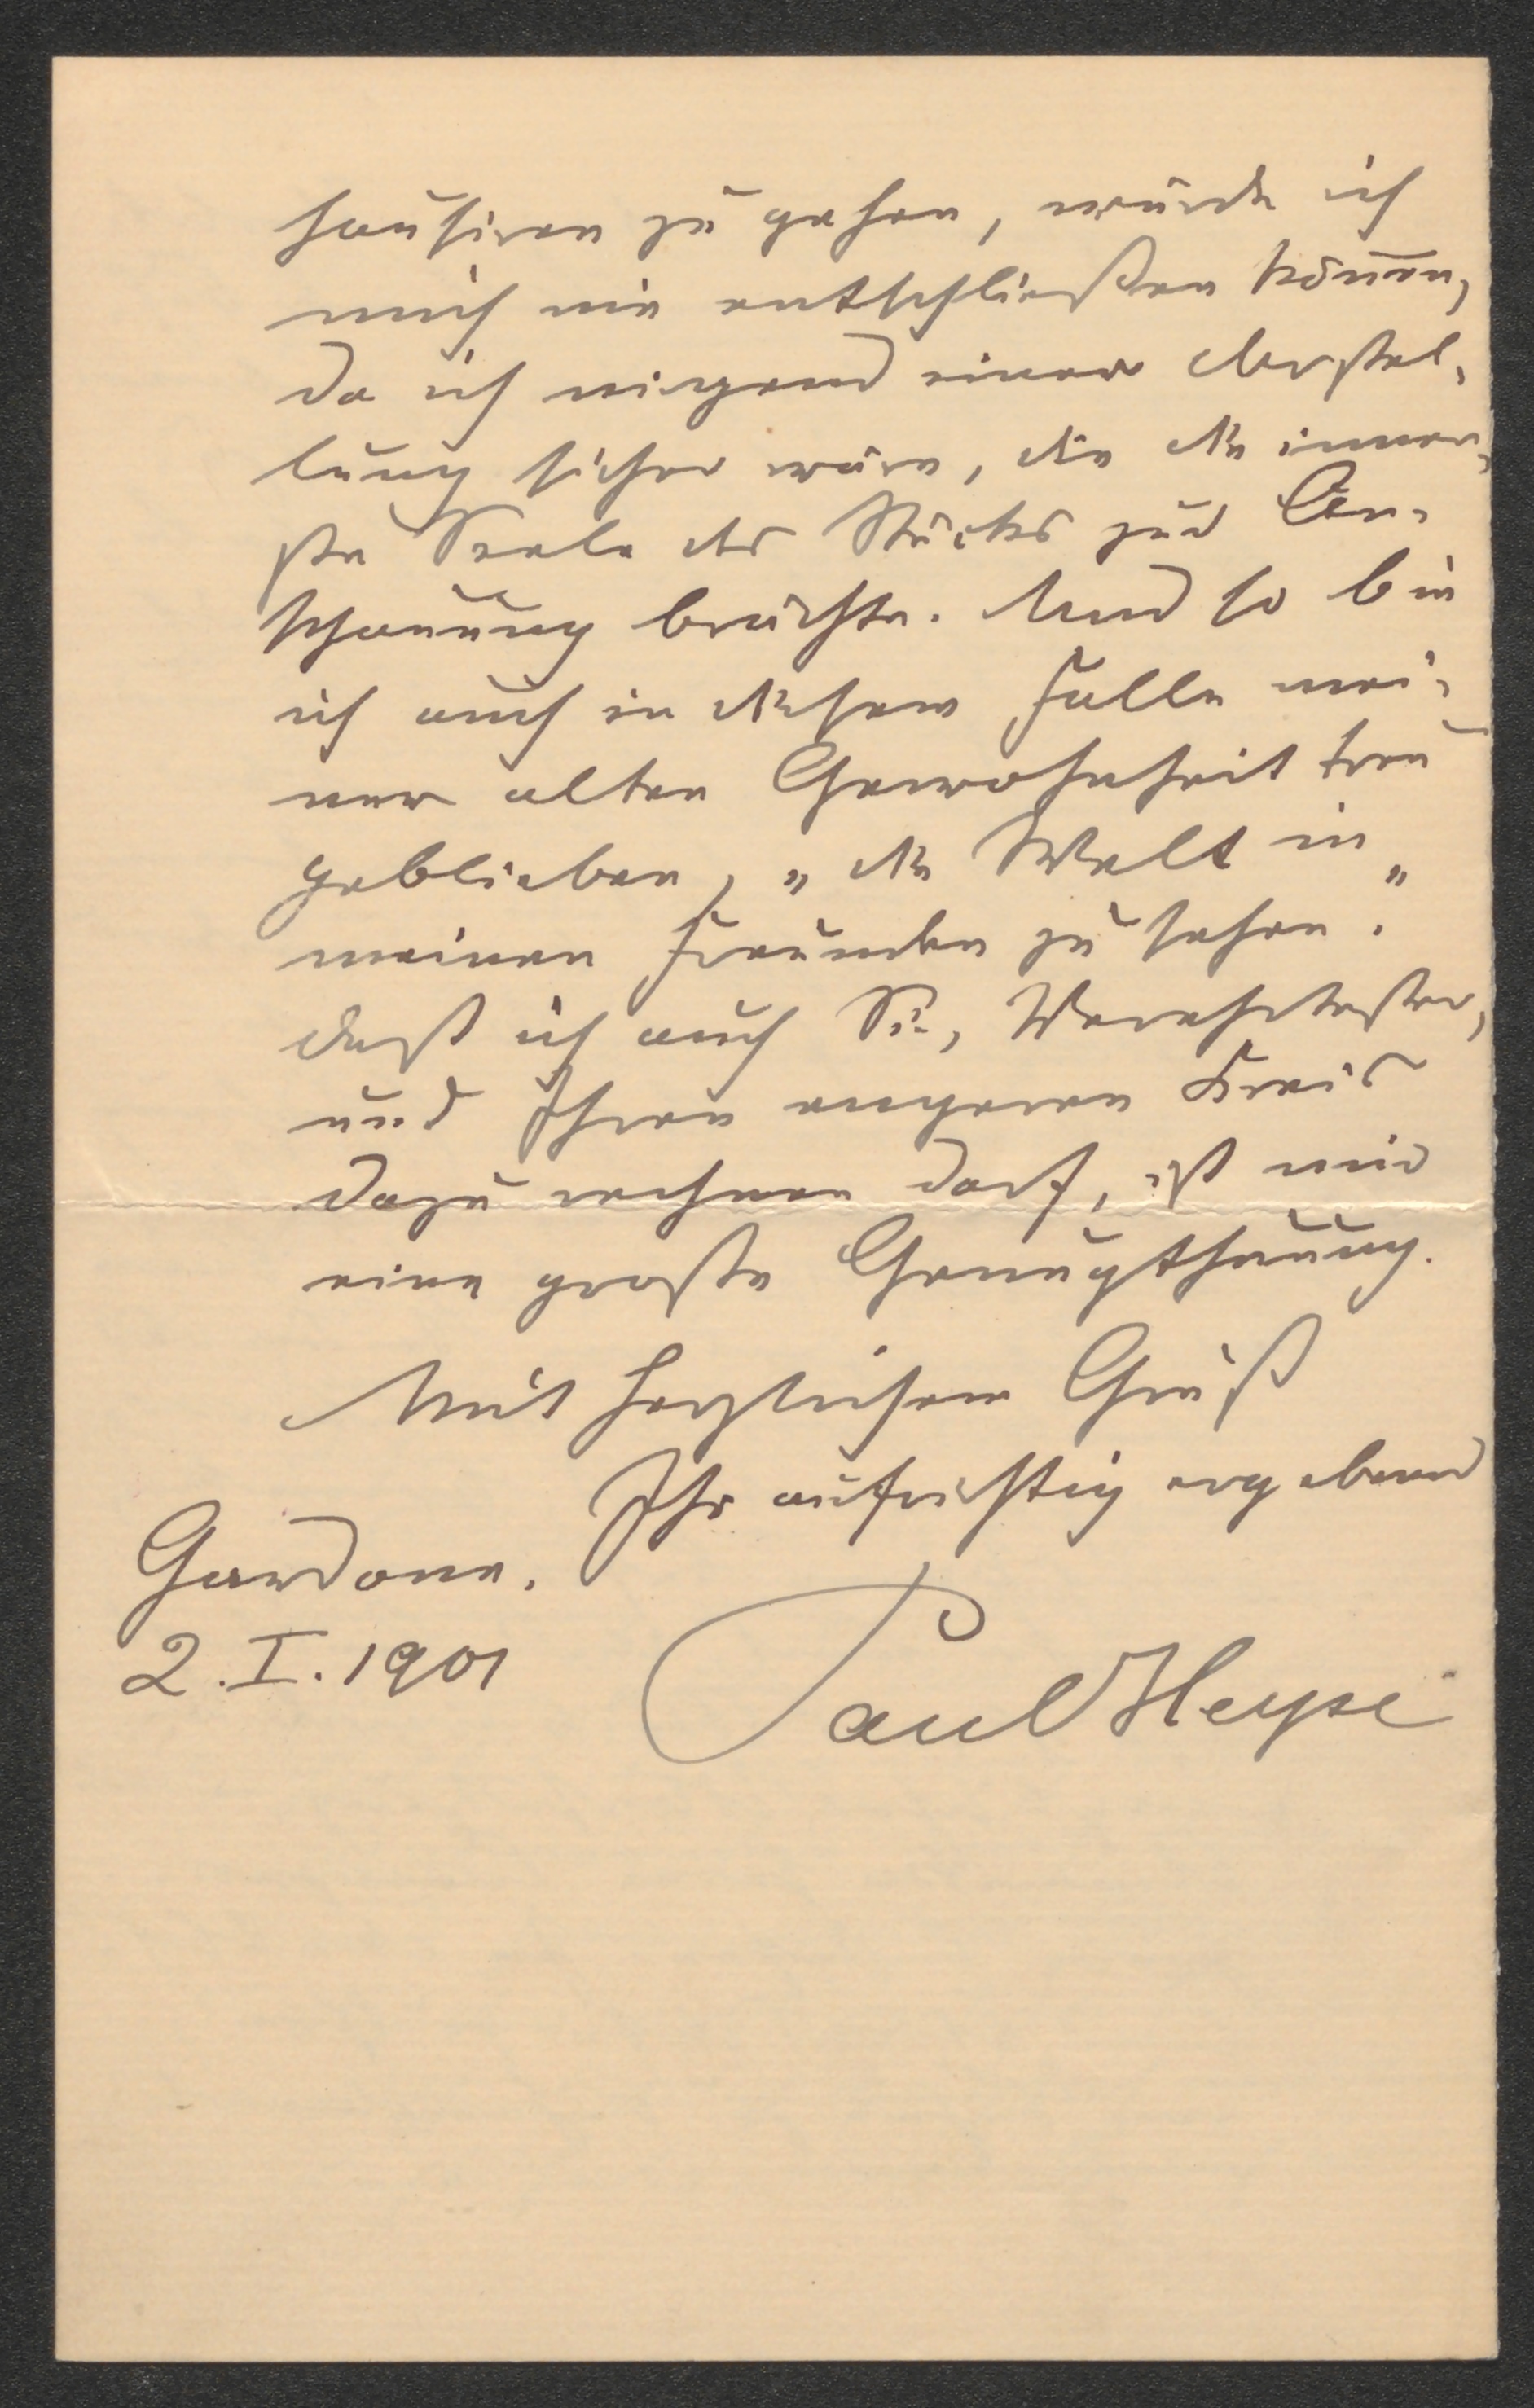 hausiren zu gehen, würde ich
mich nie entschließen können,
da ich nirgend einer Darstel-
lung sicher wäre, die die inner-
ste Seele des Stücks zur An-
schauung brächte. Und so bin
ich auch in diesem Falle mei-
ner alten Gewohnheit treu
geblieben, „die Welt in
meinen Freunden zu sehen."
Daß ich auch Sie, Verehrtester,
und Ihren engeren Kreis
dazu rechnen darf, ist mir
eine große Genugthuung.
Mit herzlichem Gruß
Ihr aufrichtig ergebener
Gardone.
2. I. 1901
Paul Heyse